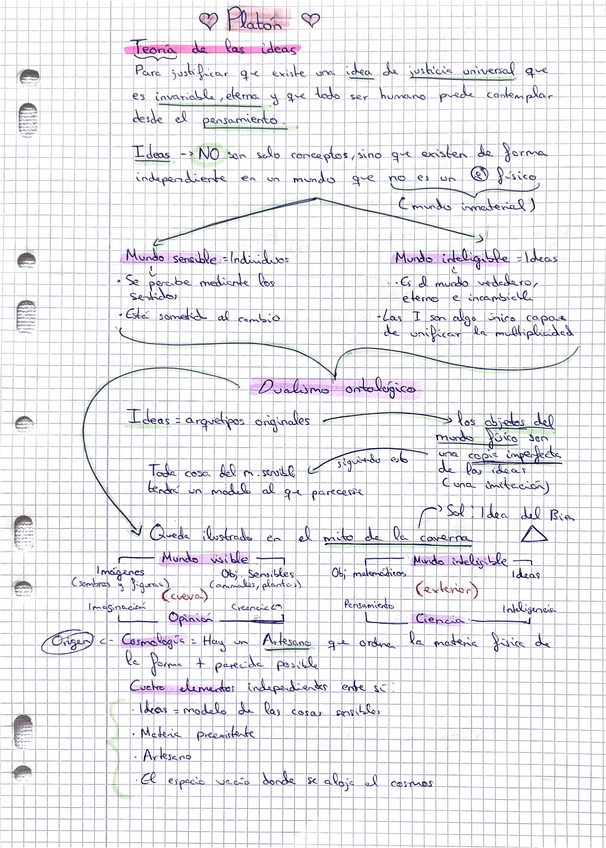 Platón
Teoría de las ideas
Para justificar que existe una idea de justicia universal que
es invariable, eterna y que todo ser humano puede contemplar
desde el pensamiento.
Ideas -> NO son solo conceptos, sino que existen de forma
independiente en un mundo que no es un físico
(mundo inmaterial)
Mundo sensible = Individuos
· Se percibe mediante los
sentidos
· Está sometid al cambio
Mundo inteligible = Ideas
· Es el mundo verdadero,
eterno e incambiable
· Las I son algo único capaz
de unificar la multiplicidad
Dualismo ontológico
Ideas = arquetipos originales
los objetos del
mundo físico son
una copia imperfecta
de las ideas
(una imitación)
siguiendo esto
Toda cosa del m. sensible
tendrá un modelo al que parecerse
Sol: Idea del Bien
Queda ilustrado en el mito de la caverna
Mundo visible
Imágenes
(sombras y figuras)
Obj. Sensibles
(animales, plantas)
(cueva)
Imaginación
Creencia
Opinión
Mundo inteligible
Obj matemáticos
Ideas
(exterior)
Pensamiento
Inteligencia
Ciencia
Origen <- Cosmología = Hay un Artesano que ordena la materia física de
la forma + parecida posible
Cuatro elementos independientes entre sí:
· Ideas = modelo de las cosas sensibles
· Materia preexistente
· Artesano
· El espacio vacío donde se aloja el cosmos